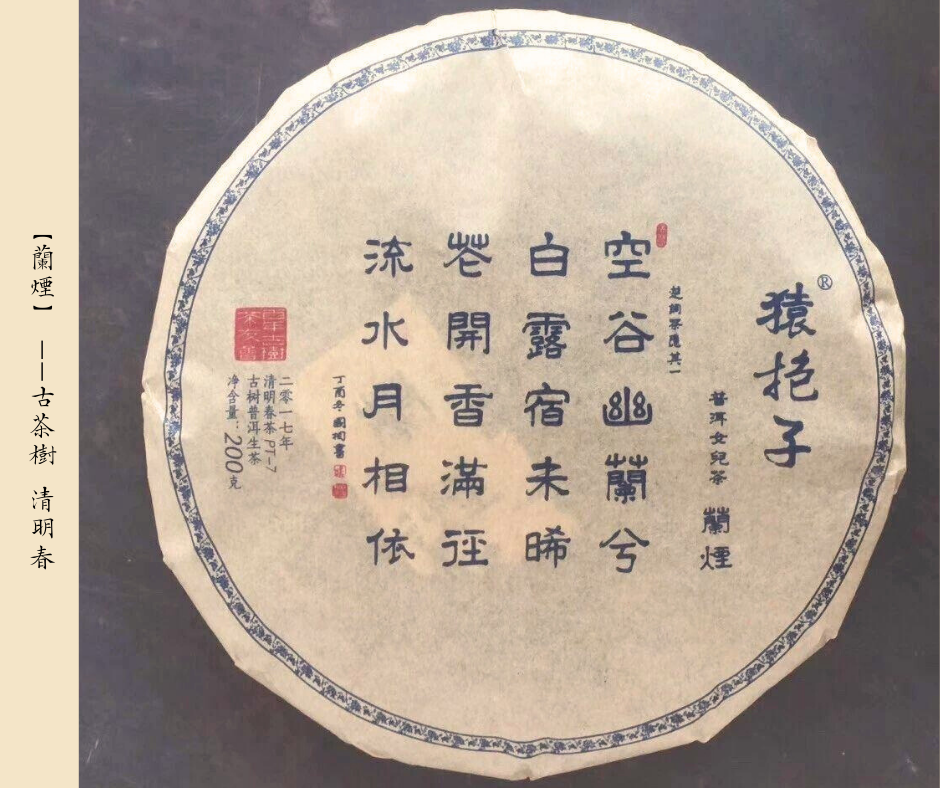 【蘭煙】——古茶樹 清明春
®
猿抱子
普洱女兒茶 蘭煙
楚調茶隱其一
空谷幽蘭兮
白露宿未晞
苍開香滿徑
流水月相依
丁酉冬
二零一七年
清明春茶PT-7
古树普洱生茶
净含量：200克